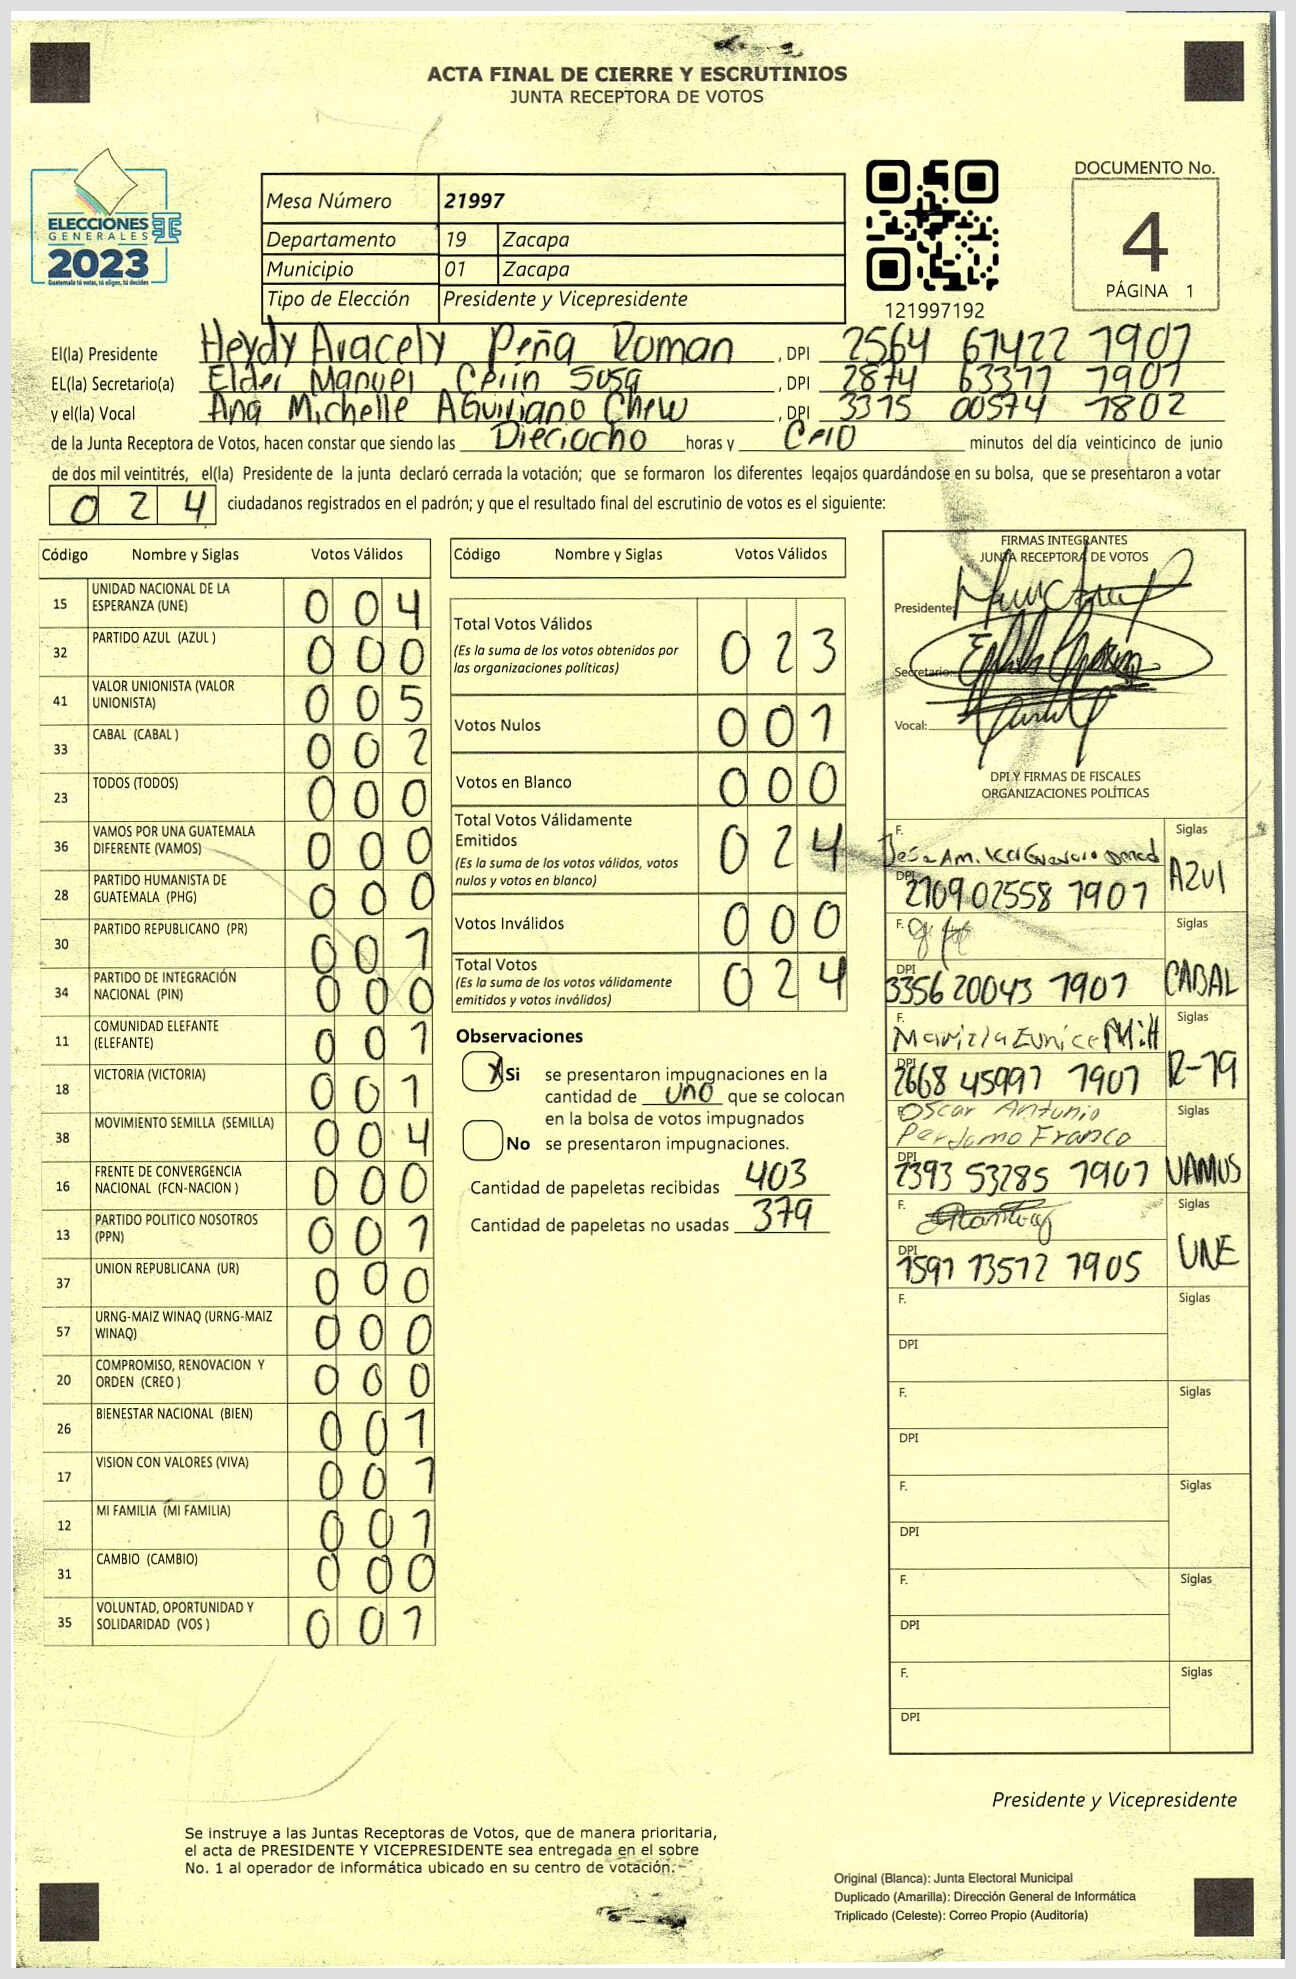 ACTA FINAL DE CIERRE Y ESCRUTINIOS
JUNTA RECEPTORA DE VOTOS
ELECCIONES
GENERALES
2023
Guatemala tú votas, tú eliges, tú decides
Mesa Número 21997
Departamento 19 Zacapa
Municipio 01 Zacapa
Tipo de Elección Presidente y Vicepresidente
121997192
DOCUMENTO No.
4
PÁGINA 1
El(la) Presidente Heydy Aracely Peña Roman , DPI 2564 67422 1907
EL(la) Secretario(a) Elder Manuel Cerin Sosa , DPI 2874 63377 1901
y el(la) Vocal Ana Michelle Aguiriano Chew , DPI 3375 00574 1802
de la Junta Receptora de Votos, hacen constar que siendo las Dieciocho horas y Cero minutos del día veinticinco de junio
de dos mil veintitrés, el(la) Presidente de la junta declaró cerrada la votación; que se formaron los diferentes legajos guardándose en su bolsa, que se presentaron a votar
0 2 4 ciudadanos registrados en el padrón; y que el resultado final del escrutinio de votos es el siguiente:
Código Nombre y Siglas Votos Válidos
15 UNIDAD NACIONAL DE LA ESPERANZA (UNE) 0 0 4
32 PARTIDO AZUL (AZUL ) 0 0 0
41 VALOR UNIONISTA (VALOR UNIONISTA) 0 0 5
33 CABAL (CABAL ) 0 0 2
23 TODOS (TODOS) 0 0 0
36 VAMOS POR UNA GUATEMALA DIFERENTE (VAMOS) 0 0 0
28 PARTIDO HUMANISTA DE GUATEMALA (PHG) 0 0 0
30 PARTIDO REPUBLICANO (PR) 0 0 1
34 PARTIDO DE INTEGRACIÓN NACIONAL (PIN) 0 0 0
11 COMUNIDAD ELEFANTE (ELEFANTE) 0 0 1
18 VICTORIA (VICTORIA) 0 0 1
38 MOVIMIENTO SEMILLA (SEMILLA) 0 0 4
16 FRENTE DE CONVERGENCIA NACIONAL (FCN-NACION ) 0 0 0
13 PARTIDO POLITICO NOSOTROS (PPN) 0 0 1
37 UNION REPUBLICANA (UR) 0 0 0
57 URNG-MAIZ WINAQ (URNG-MAIZ WINAQ) 0 0 0
20 COMPROMISO, RENOVACION Y ORDEN (CREO ) 0 0 0
26 BIENESTAR NACIONAL (BIEN) 0 0 1
17 VISION CON VALORES (VIVA) 0 0 1
12 MI FAMILIA (MI FAMILIA) 0 0 1
31 CAMBIO (CAMBIO) 0 0 0
35 VOLUNTAD, OPORTUNIDAD Y SOLIDARIDAD (VOS ) 0 0 1
Código Nombre y Siglas Votos Válidos
Total Votos Válidos 0 2 3
(Es la suma de los votos obtenidos por
las organizaciones políticas)
Votos Nulos 0 0 1
Votos en Blanco 0 0 0
Total Votos Válidamente
Emitidos 0 2 4
(Es la suma de los votos válidos, votos
nulos y votos en blanco)
Votos Inválidos 0 0 0
Total Votos 0 2 4
(Es la suma de los votos válidamente
emitidos y votos inválidos)
Observaciones
X Si se presentaron impugnaciones en la
cantidad de uno que se colocan
en la bolsa de votos impugnados
No se presentaron impugnaciones.
Cantidad de papeletas recibidas 403
Cantidad de papeletas no usadas 379
FIRMAS INTEGRANTES
JUNTA RECEPTORA DE VOTOS
Presidente:
Secretario:
Vocal:
DPI Y FIRMAS DE FISCALES
ORGANIZACIONES POLÍTICAS
F. Siglas
DPI 2709 02558 1907 AZul
F. Siglas
DPI 3356 20043 1901 CABAL
F. Mariela Eunice Siglas
DPI 2668 45997 1907 R-19
F. Oscar Antonio Siglas
Perdomo Franco
DPI 2393 53285 1907 VAMOS
F. Siglas
DPI 1591 13512 1905 UNE
F. Siglas
DPI
F. Siglas
DPI
F. Siglas
DPI
F. Siglas
DPI
F. Siglas
DPI
Presidente y Vicepresidente
Se instruye a las Juntas Receptoras de Votos, que de manera prioritaria,
el acta de PRESIDENTE Y VICEPRESIDENTE sea entregada en el sobre
No. 1 al operador de informática ubicado en su centro de votación.
Original (Blanca): Junta Electoral Municipal
Duplicado (Amarilla): Dirección General de Informática
Triplicado (Celeste): Correo Propio (Auditoría)